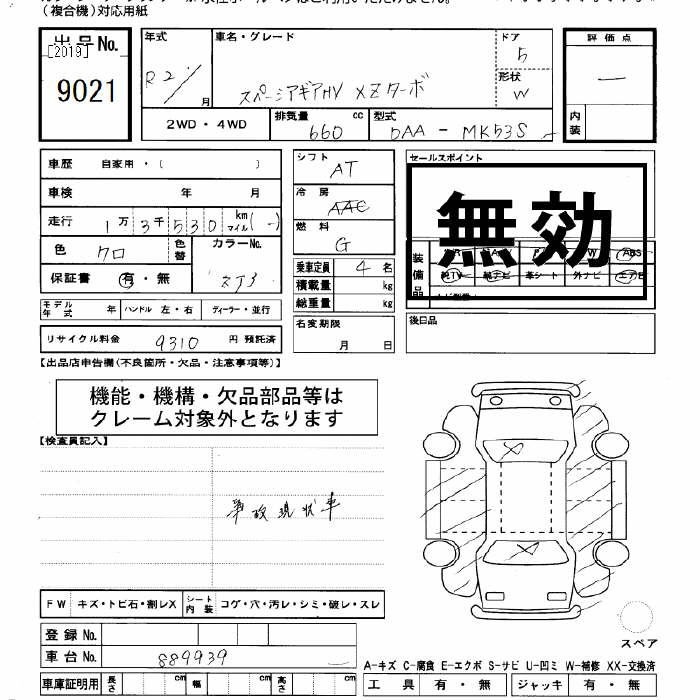 (複合機)対応用紙
出品No.
[2019]
9021
年式
R2/ 月
車名・グレード
スペーシアギアHV XZターボ
ドア
5
形状
W
評価点
—
内装
2WD・4WD
排気量 660 cc
型式 DAA - MK53S -
車歴 自家用・( )
車検 年 月
走行 1万3千530 km マイル(-)
色 クロ
色替
カラーNo. ZJ3
保証書 有・無
モデル年式 年
ハンドル 左・右
ディーラー・並行
リサイクル料金 9310 円 預託済
シフト AT
冷房 AAC
燃料 G
乗車定員 4 名
積載量 kg
総重量 kg
名変期限
月 日
セールスポイント
無効
装備品
ABS
革シート 外ナビ エアB
後日品
【出品店申告欄(不良箇所・欠品・注意事項等)】
機能・機構・欠品部品等は
クレーム対象外となります
【検査員記入】
事故現状車
FW キズ・トビ石・割レX
シート内装 コゲ・穴・汚レ・シミ・破レ・スレ
登録No.
車台No. 889939
車庫証明用 長さ cm 幅 cm 高さ cm
スペア
A-キズ C-腐食 E-エクボ S-サビ U-凹ミ W-補修 XX-交換済
工具 有・無 ジャッキ 有・無